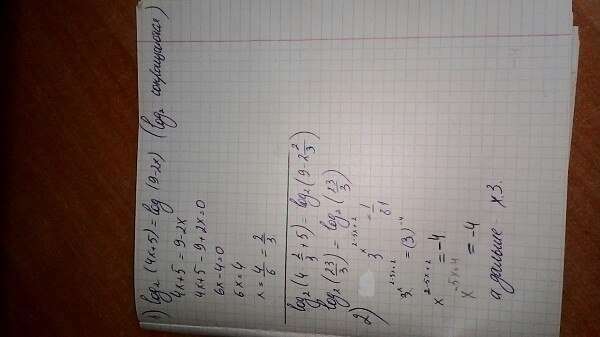 1) log₂ (4x+5) = log (9-2x) (log₂ сокращаются)
4x+5 = 9-2x
4x+5-9+2x=0
6x-4=0
6x=4
x = 4/6 = 2/3
log₂(4 2/3 +5) = log₂(9-2 2/3)
log₂(23/3) = log₂(23/3)
2) 3^x^2-5x+2 = 1/81
3^x^2-5x+2 = (3)^-4
x^2-5x+2 = -4
x^-5x+4 = -4
а дальше - хз.